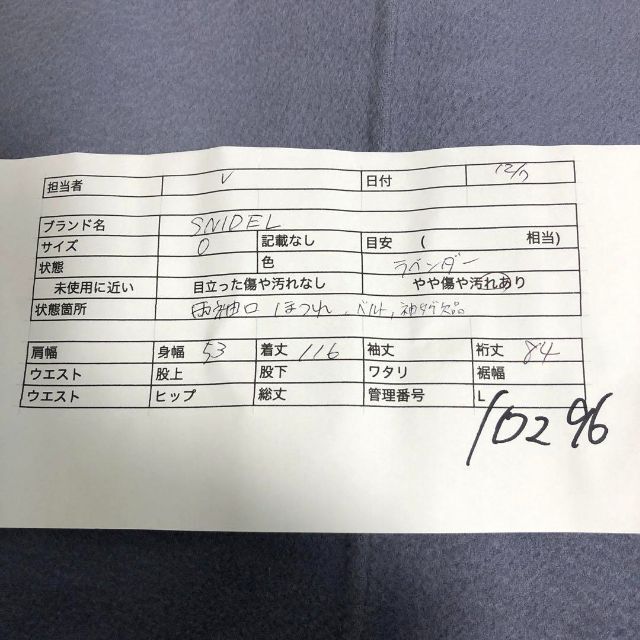 担当者 V 日付 12/7
ブランド名 SNIDEL
サイズ 0 記載なし 目安 ( 相当)
状態 色 ラベンダー
未使用に近い 目立った傷や汚れなし やや傷や汚れあり
状態箇所 両袖口 ほつれ、ベルト、袖タグ欠品
肩幅 身幅 53 着丈 116 袖丈 裄丈 84
ウエスト 股上 股下 ワタリ 裾幅
ウエスト ヒップ 総丈 管理番号 L
10296